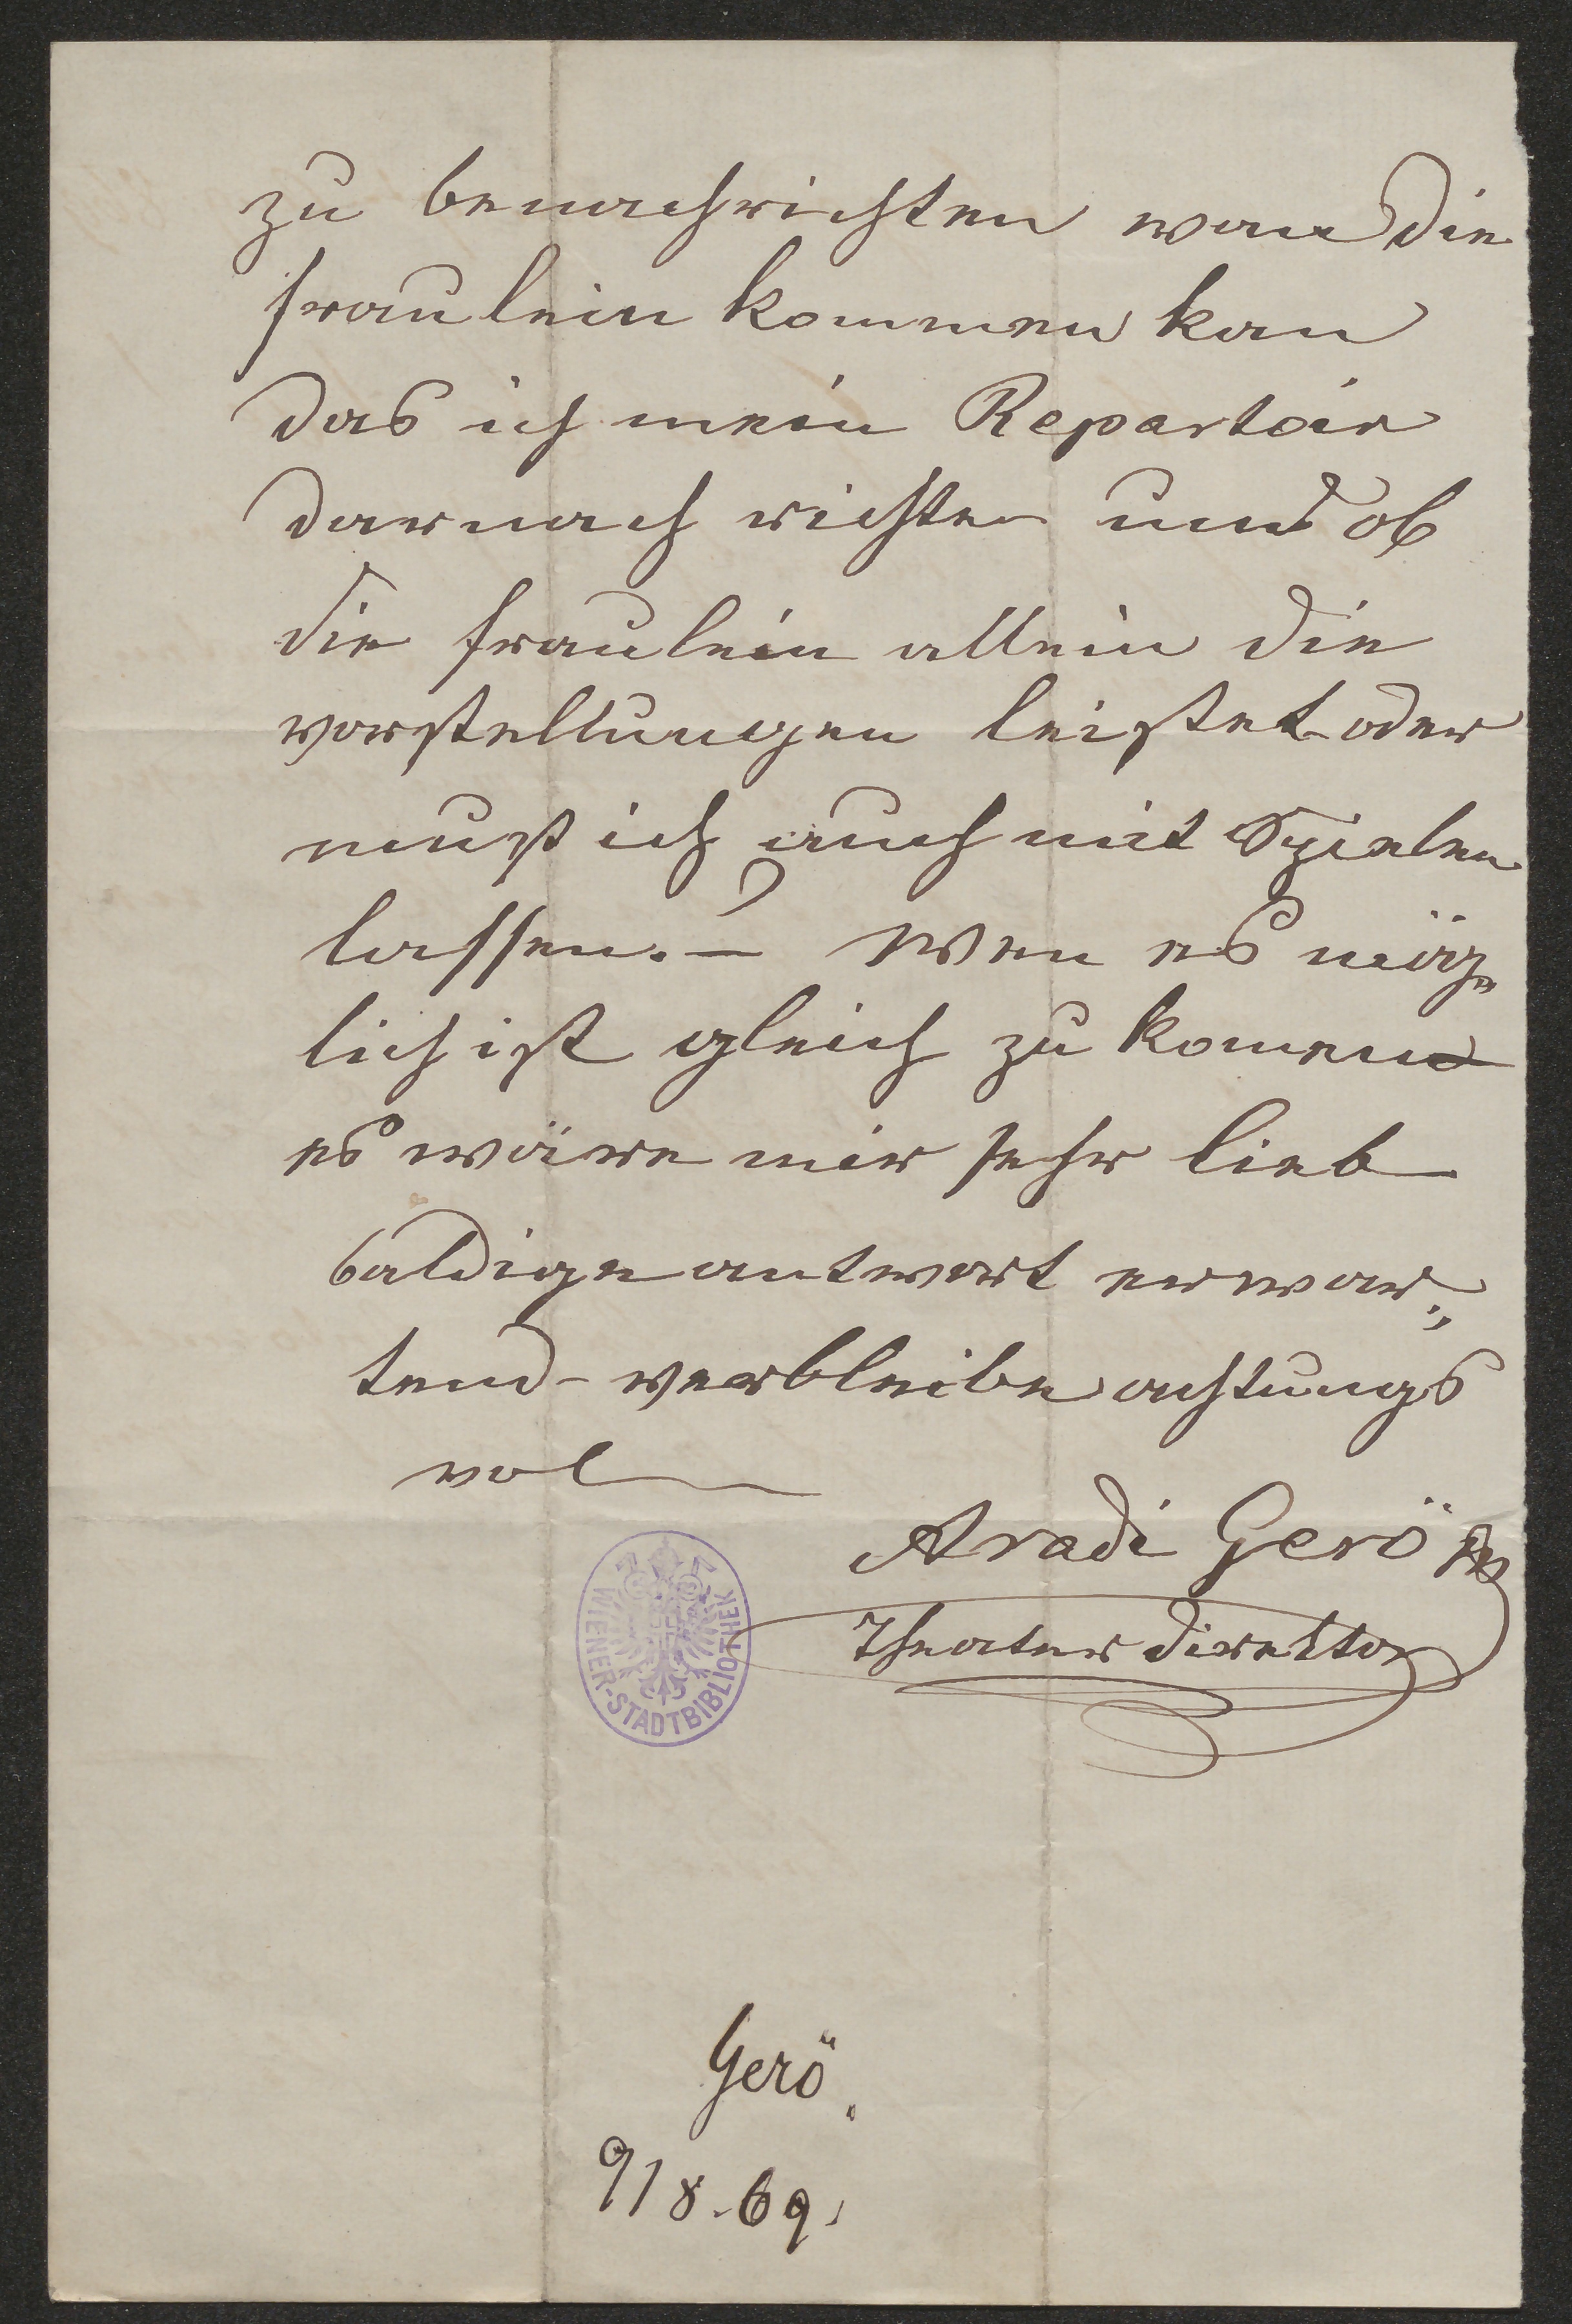 zu benachrichten wan die
fraulein kommen kan
das ich mein Repartoir
darnach richten und ob
die fraulein allein die
vorstellungen leistet oder
must ich auch mit Spielen
lassen. — Wen es mög„
lich ist gleich zu kommen
es wäre mir sehr lieb
baldige antwort erwar„
tend – verbleibe achtungs
vol
Aradi Gerö
Theater direktor
WIENER-STADTBIBLIOTHEK
Gerö
9/8.69.